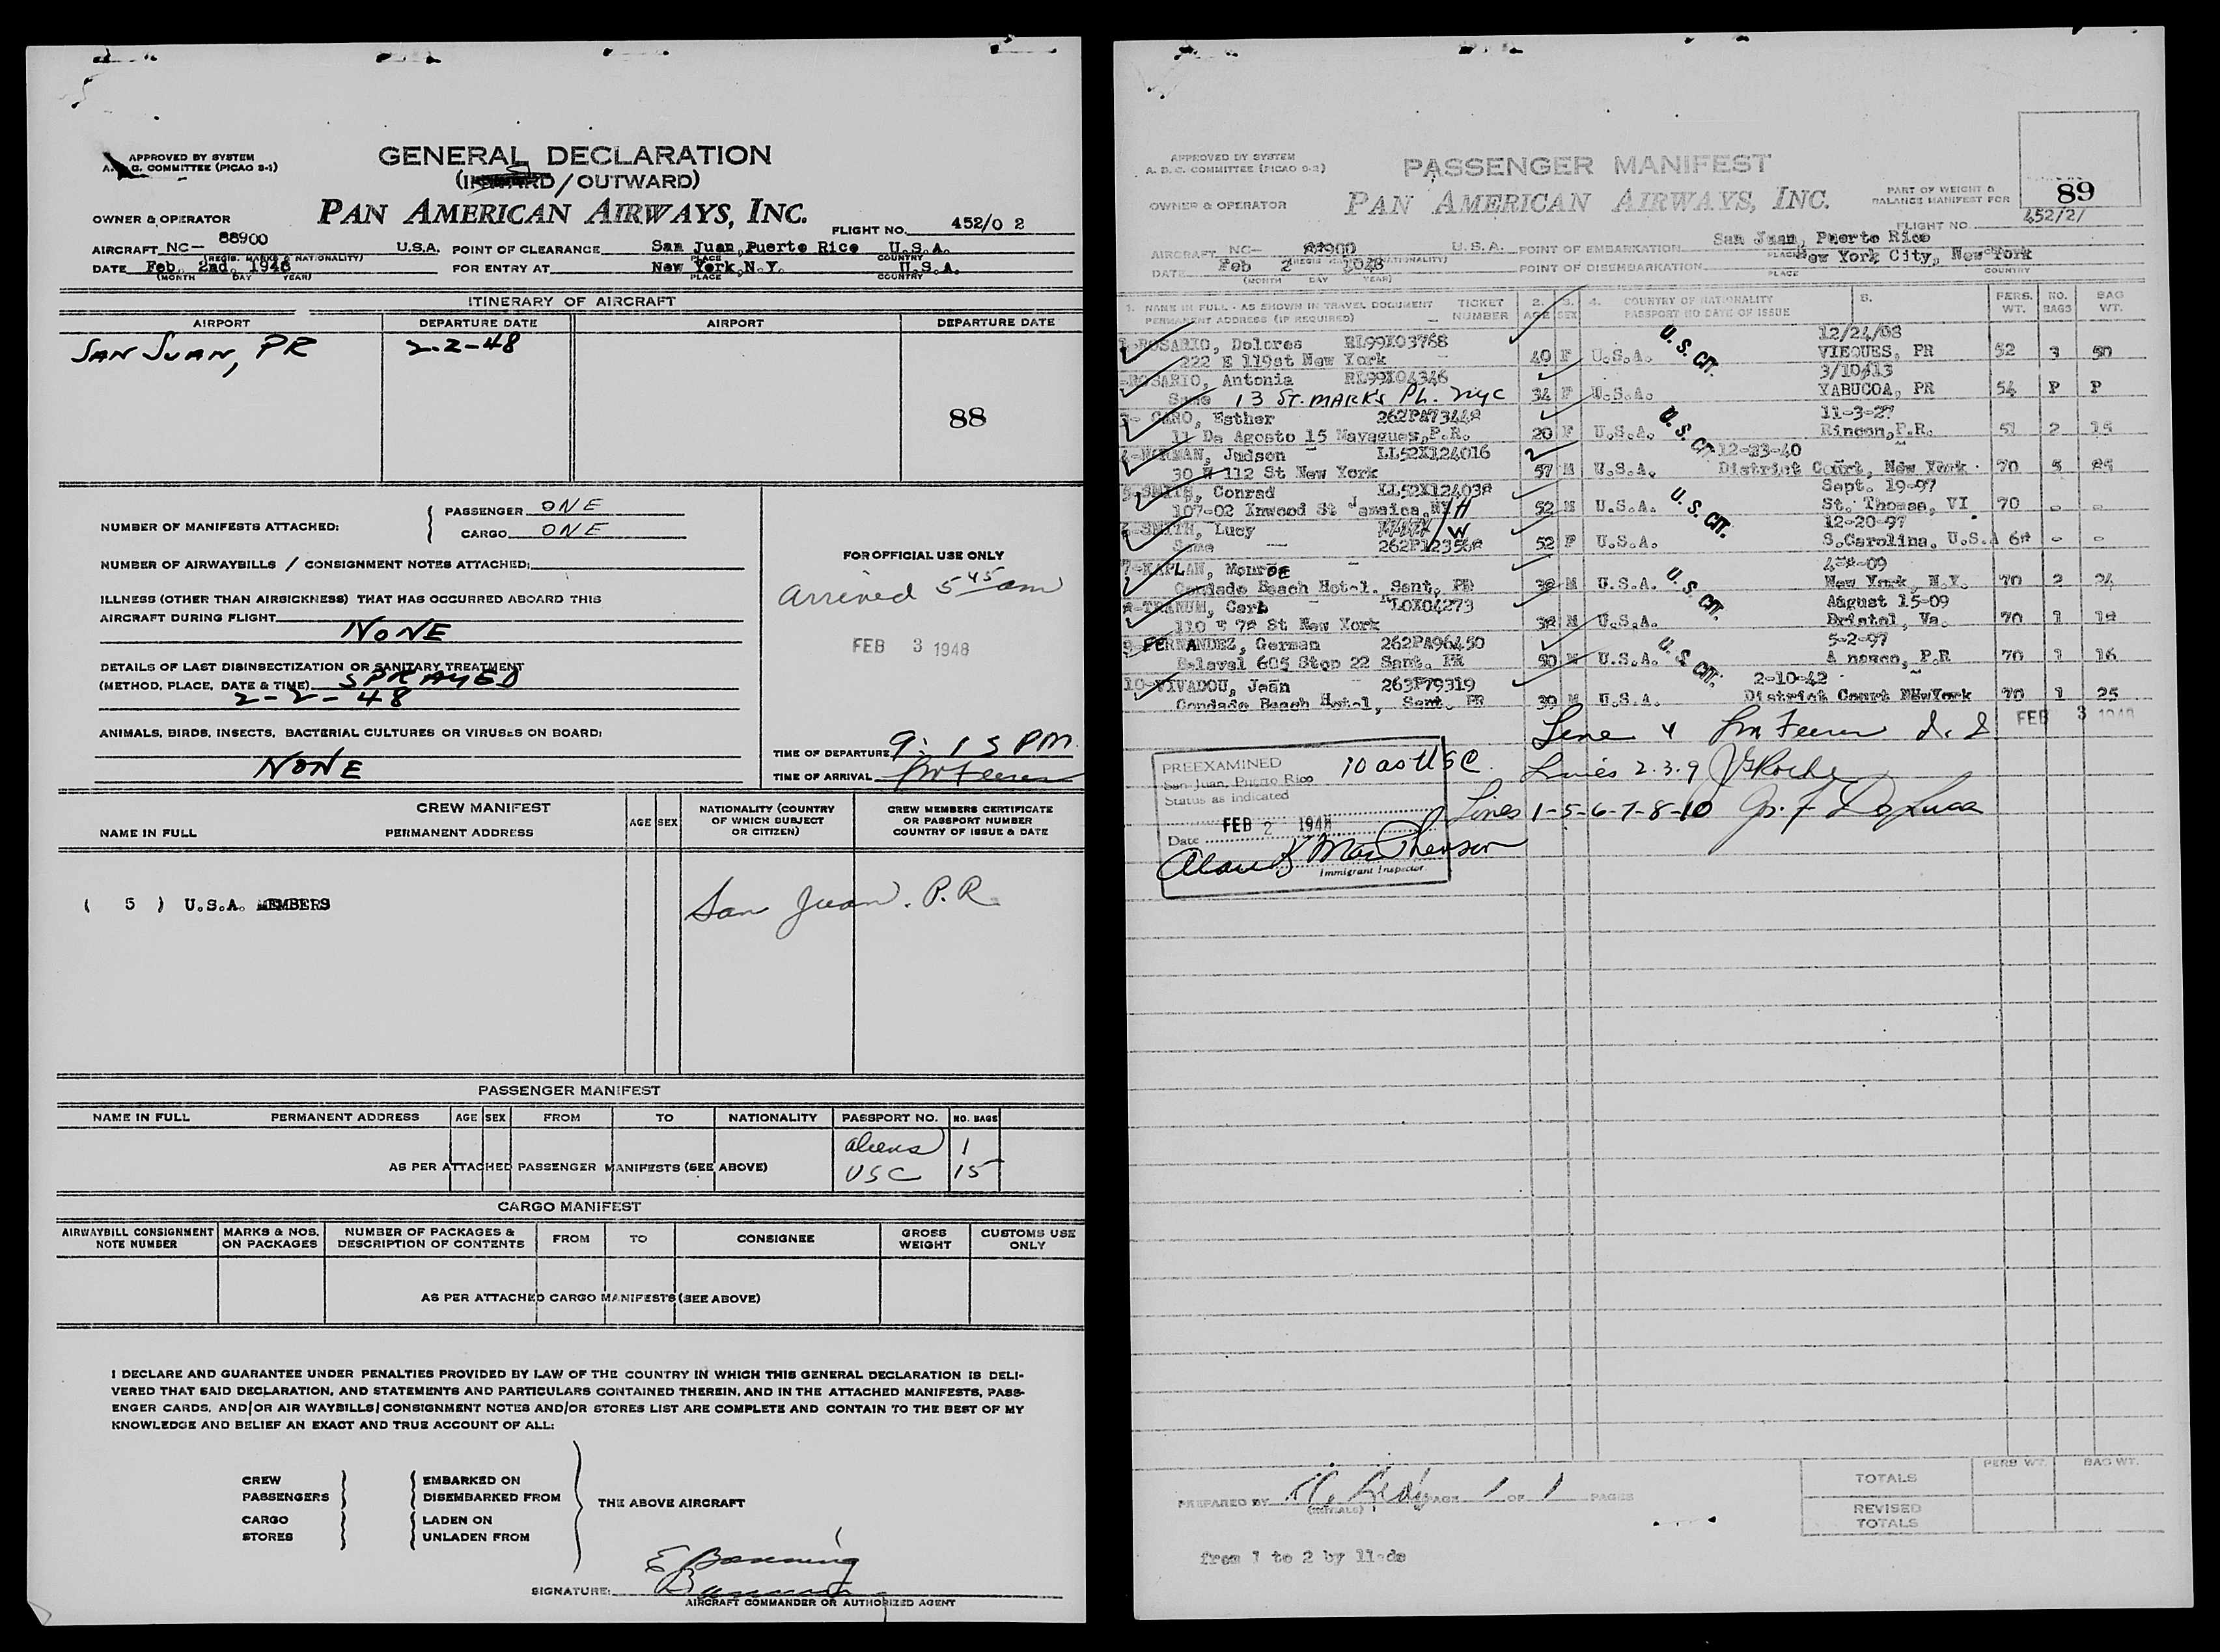 APPROVED BY SYSTEM
A. D. C. COMMITTEE (PICAO 3-1)
GENERAL DECLARATION
(INWARD/OUTWARD)
OWNER & OPERATOR
PAN AMERICAN AIRWAYS, INC.
FLIGHT NO. 452/0 2
AIRCRAFT NC- 88900 U.S.A. POINT OF CLEARANCE San Juan, Puerto Rico U.S.A.
(REGIS. MARKS & NATIONALITY) PLACE COUNTRY
DATE Feb. 2nd. 1948 FOR ENTRY AT New York, N.Y. U.S.A.
(MONTH DAY YEAR) PLACE COUNTRY
ITINERARY OF AIRCRAFT
AIRPORT DEPARTURE DATE AIRPORT DEPARTURE DATE
SAN JUAN, PR 2-2-48
88
NUMBER OF MANIFESTS ATTACHED: PASSENGER ONE
CARGO ONE
NUMBER OF AIRWAYBILLS / CONSIGNMENT NOTES ATTACHED:
ILLNESS (OTHER THAN AIRSICKNESS) THAT HAS OCCURRED ABOARD THIS
AIRCRAFT DURING FLIGHT
NONE
DETAILS OF LAST DISINSECTIZATION OR SANITARY TREATMENT
(METHOD, PLACE, DATE & TIME) SPRAYED
2-2-48
ANIMALS, BIRDS, INSECTS, BACTERIAL CULTURES OR VIRUSES ON BOARD:
NONE
FOR OFFICIAL USE ONLY
Arrived 5 45 am
FEB 3 1948
TIME OF DEPARTURE 9:15 PM.
TIME OF ARRIVAL
CREW MANIFEST
NAME IN FULL PERMANENT ADDRESS AGE SEX NATIONALITY (COUNTRY OF WHICH SUBJECT OR CITIZEN) CREW MEMBERS CERTIFICATE OR PASSPORT NUMBER COUNTRY OF ISSUE & DATE
( 5 ) U.S.A. MEMBERS San Juan. P.R.
PASSENGER MANIFEST
NAME IN FULL PERMANENT ADDRESS AGE SEX FROM TO NATIONALITY PASSPORT NO. NO. BAGS
aliens 1
AS PER ATTACHED PASSENGER MANIFESTS (SEE ABOVE) USC 15
CARGO MANIFEST
AIRWAYBILL CONSIGNMENT NOTE NUMBER MARKS & NOS. ON PACKAGES NUMBER OF PACKAGES & DESCRIPTION OF CONTENTS FROM TO CONSIGNEE GROSS WEIGHT CUSTOMS USE ONLY
AS PER ATTACHED CARGO MANIFESTS (SEE ABOVE)
I DECLARE AND GUARANTEE UNDER PENALTIES PROVIDED BY LAW OF THE COUNTRY IN WHICH THIS GENERAL DECLARATION IS DELI-
VERED THAT SAID DECLARATION, AND STATEMENTS AND PARTICULARS CONTAINED THEREIN, AND IN THE ATTACHED MANIFESTS, PASS-
ENGER CARDS, AND/OR AIR WAYBILLS/ CONSIGNMENT NOTES AND/OR STORES LIST ARE COMPLETE AND CONTAIN TO THE BEST OF MY
KNOWLEDGE AND BELIEF AN EXACT AND TRUE ACCOUNT OF ALL:
CREW EMBARKED ON
PASSENGERS DISEMBARKED FROM
THE ABOVE AIRCRAFT
CARGO LADEN ON
STORES UNLADEN FROM
E Banning
SIGNATURE:
AIRCRAFT COMMANDER OR AUTHORIZED AGENT
APPROVED BY SYSTEM
A. D. C. COMMITTEE (PICAO 3-2)
PASSENGER MANIFEST
OWNER & OPERATOR
PAN AMERICAN AIRWAYS, INC.
PART OF WEIGHT &
BALANCE MANIFEST FOR
89
FLIGHT NO. 452/2/
AIRCRAFT NC- 88900 U.S.A. POINT OF EMBARKATION San Juan, Puerto Rico
DATE Feb 2 1948 POINT OF DISEMBARKATION New York City, New York
(MONTH DAY YEAR) PLACE COUNTRY
1. NAME IN FULL - AS SHOWN IN TRAVEL DOCUMENT TICKET 2. 3. 4. COUNTRY OF NATIONALITY 5. PERS. NO. BAG
PERMANENT ADDRESS (IF REQUIRED) NUMBER AGE SEX PASSPORT NO DATE OF ISSUE WT. BAGS WT.
1-ROSARIO, Dolores RL99X03768 12/24/08
222 E 119st New York 40 F U.S.A. U.S. CIT. VIEQUES, PR 52 3 50
-ROSARIO, Antonia RL99X04346 3/10/13
Same 13 ST. MARKS PL. NYC 34 F U.S.A. YABUCOA, PR 54 P P
3- CARO, Esther 262PA73448 11-3-27
11 De Agosto 15 Mayaguez, P.R. 20 F U.S.A. U.S. CIT. Rincon, P.R. 51 2 15
4-NORMAN, Judson LL52X124016 12-23-40
30 W 112 St New York 57 M U.S.A. District Court, New York 70 5 85
5-SMITH, Conrad LL52X124038 Sept. 19-97
107-02 Inwood St Jamaica, NY H 52 M U.S.A. U.S. CIT. St. Thomas, VI 70 - -
6-SMITH, Lucy W 12-20-97
Same 262P123568 52 F U.S.A. S.Carolina, U.S.A 68 - -
7-KAPLAN, Monroe 4-8-09
Condado Beach Hotel. Sant, PR 38 M U.S.A. U.S. CIT. New York, N.Y. 70 2 24
8-TRANUM, Carl LOX04273 August 15-09
110 W 78 St New York 38 M U.S.A. Bristol, Va. 70 1 18
9-FERNANDEZ, German 262PA96450 5-2-97
Belaval 605 Stop 22 Sant. PR 50 M U.S.A. U.S. CIT. A nasco, P.R 70 1 16
10-VIVADOU, Jean 263P79319 2-10-42
Condado Beach Hotel, Sant. PR 39 M U.S.A. District Court NEwYork 70 1 25
FEB 3 1948
Line 4
PREEXAMINED 10 as USC.
San Juan, Puerto Rico
Status as indicated
Date FEB 2 1948
Alan K MacPherson
Immigrant Inspector.
Lines 2.3.9 JG Roche
Lines 1-5-6-7-8-10
PREPARED BY PAGE 1 OF 1 PAGES
(INITIALS)
PERS WT. BAG WT.
TOTALS
REVISED
TOTALS
from 1 to 2 by